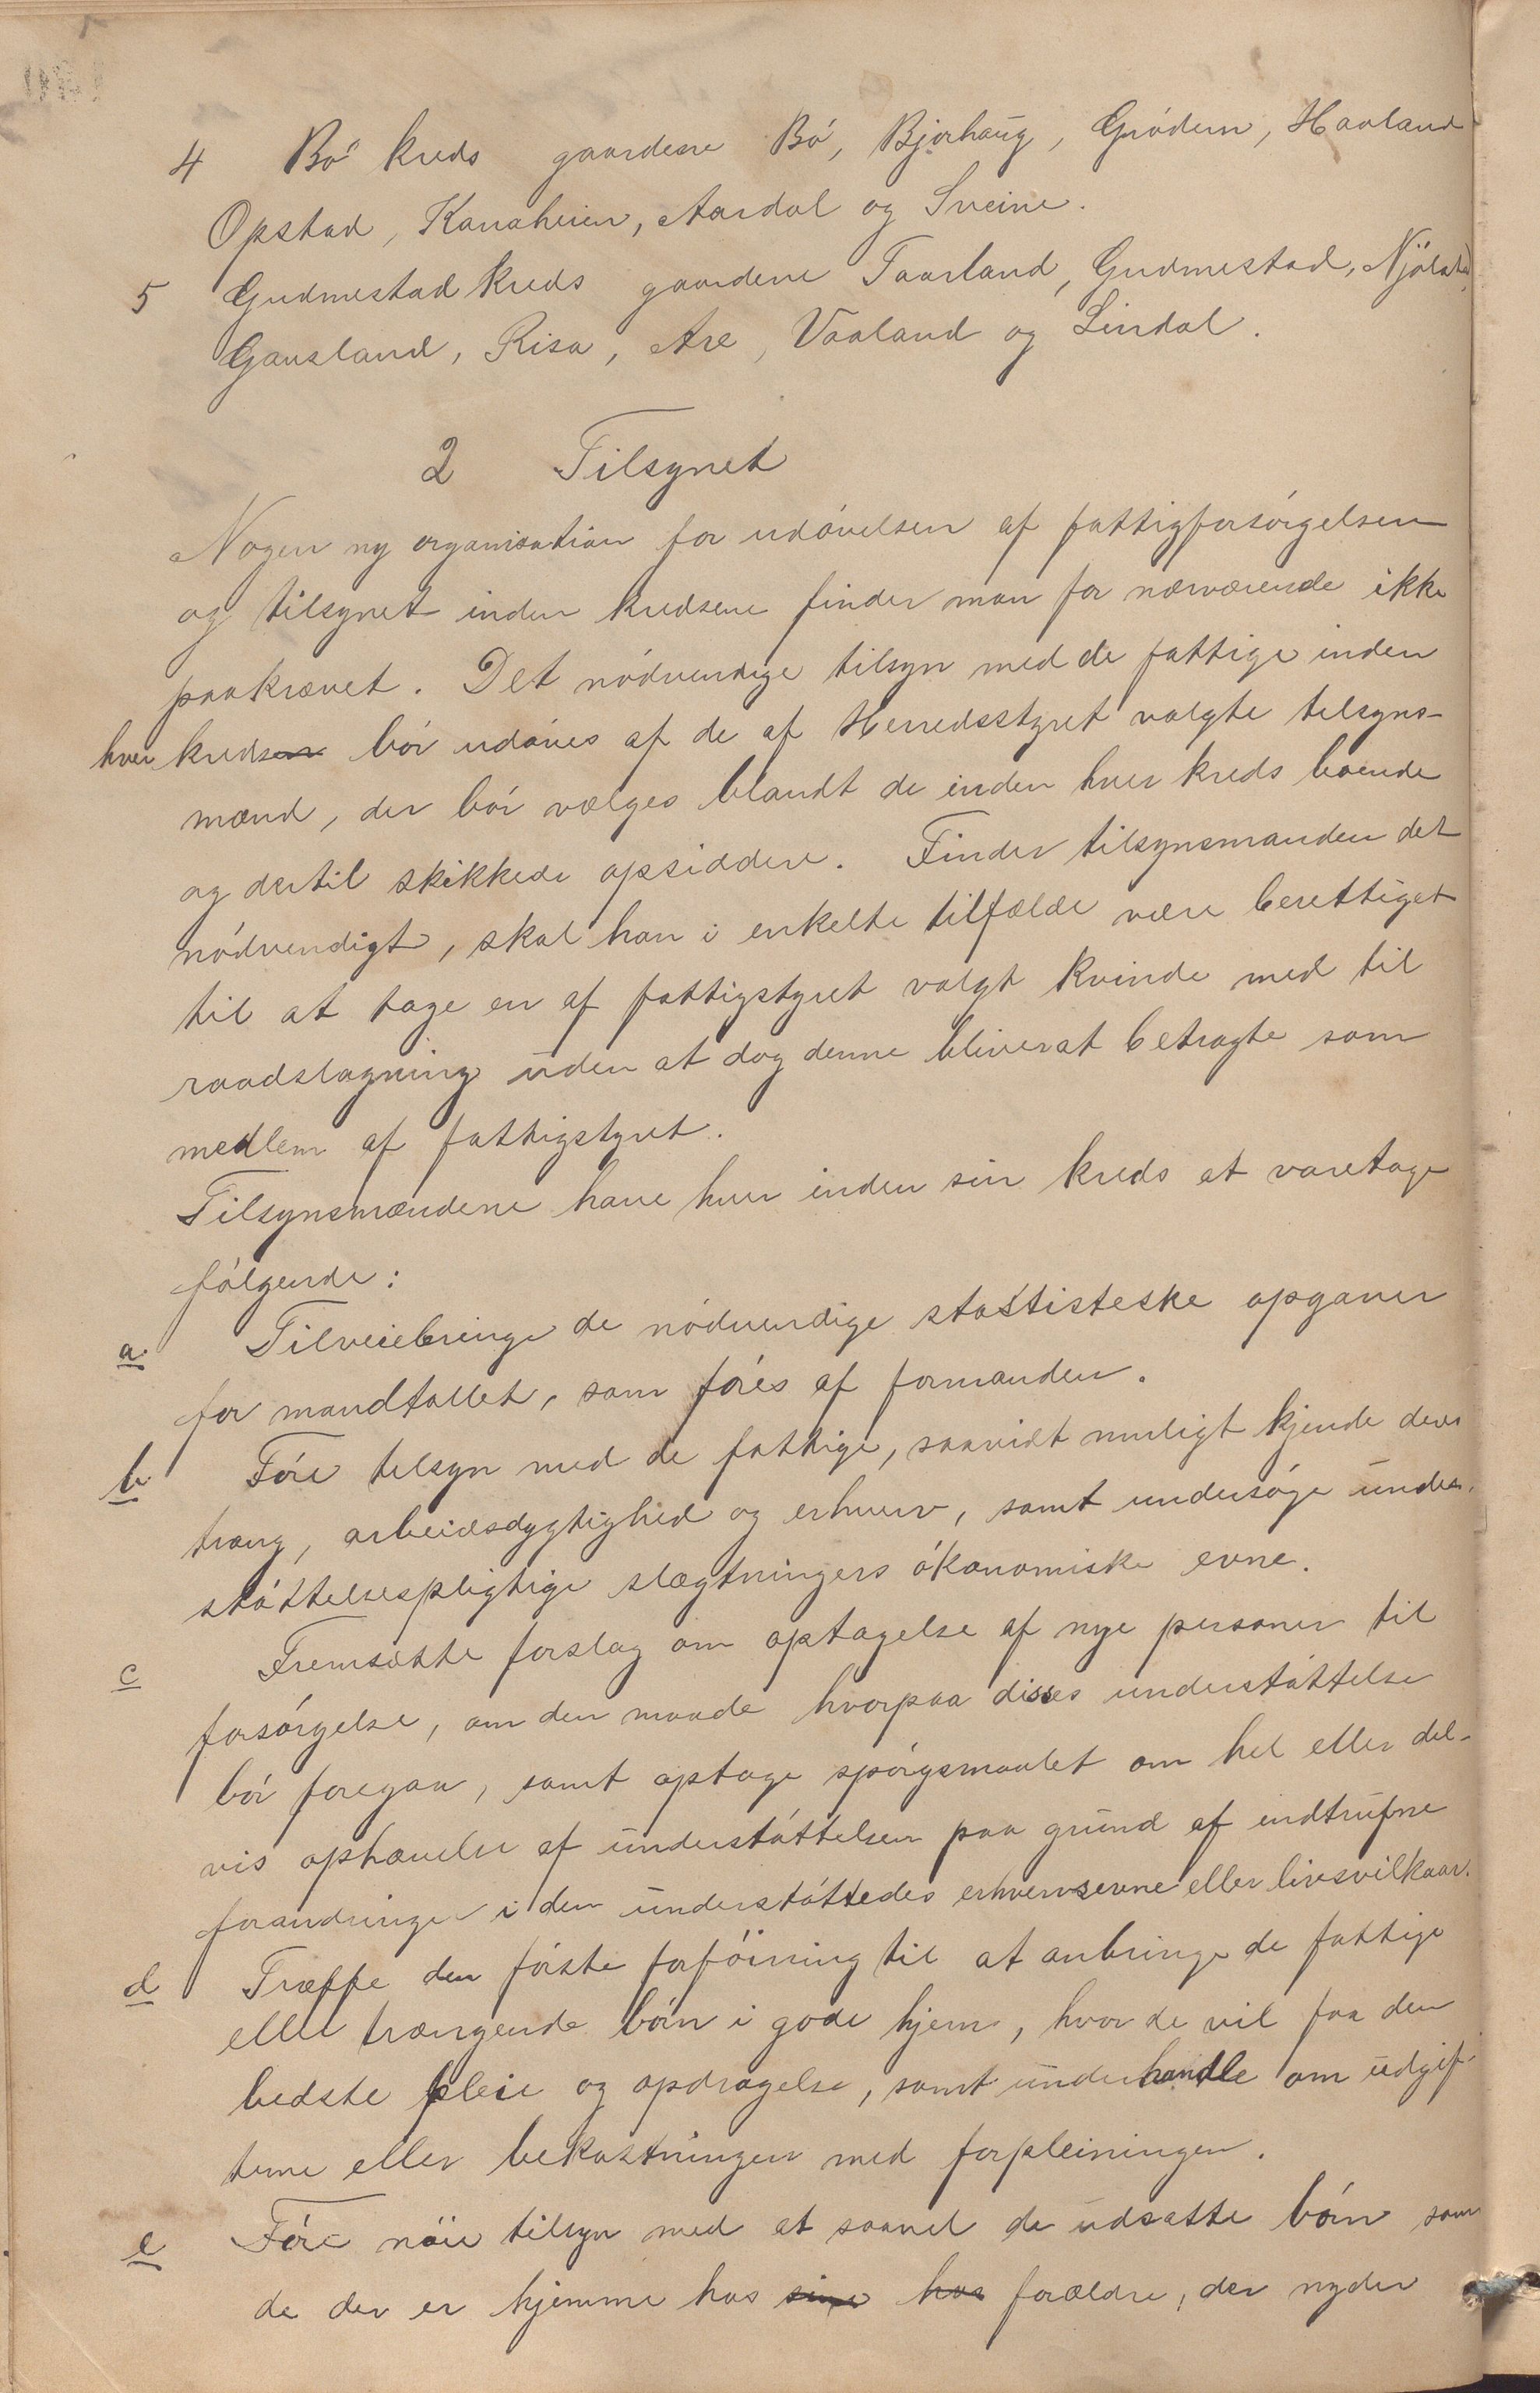 4 Bø kreds gaardene Bø, Bjorhaug, Grødem, Haaland
Opstad, Kanaheien, Aardal og Sveine.
5 Gudmestad kreds gaardene Taarland, Gudmestad, Njølstad,
Gausland, Risa, Are, Vaaland og Lindal.
2 Tilsynet
Nogen ny organisation for udøvelsen af fattigforsørgelsen
og tilsynet inden kredsene finder man for nærværende ikke
paakrævet. Det nødvendige tilsyn med de fattige inden
hver kredsene bør udøves af de af Herredsstyret valgte tilsyns-
mænd, der bør vælges blandt de inden hver kreds boende
og dertil skikkede opsiddere. Finder tilsynsmanden det
nødvendigt, skal han i enkelte tilfælde være berettiget
til at tage en af fattigstyret valgt kvinde med til
raadslagning uden at dog denne bliver at betragte som
medlem af fattigstyret.
Tilsynsmændene have hver inden sin kreds at varetage
følgende:
a. Tilveiebringe de nødvendige stastisteske opgaver
for mandtallet, som føres af formanden.
b Føre telsyn med de fattige, saavidt muligt kjende deres
trang, arbeidsdygtighed og erhverv, samt undersøge under-
støttelsespligtige slægtningers økonomiske evne.
c Fremsætte forslag om optagelse af nye personer til
forsørgelse, om den maade hvorpaa disses understøttelse
bør foregaa, samt optage spørgsmaalet om hel eller del-
vis ophævelse af understøttelsen paa grund af indtrufne
forandringer i den understøttedes erhvervsevne eller livsvilkaar.
d Træffe den første forføining til at anbringe de fattige
eller trængende børn i gode hjem, hvor de vil faa den
bedste pleie og opdragelse, samt underhandle om udgif-
terne eller bekostningen med forpleiningen.
e Føre nøie tilsyn med at saavel de udsatte børn som
de der er hjemme hos sine hos forældre, der nyder